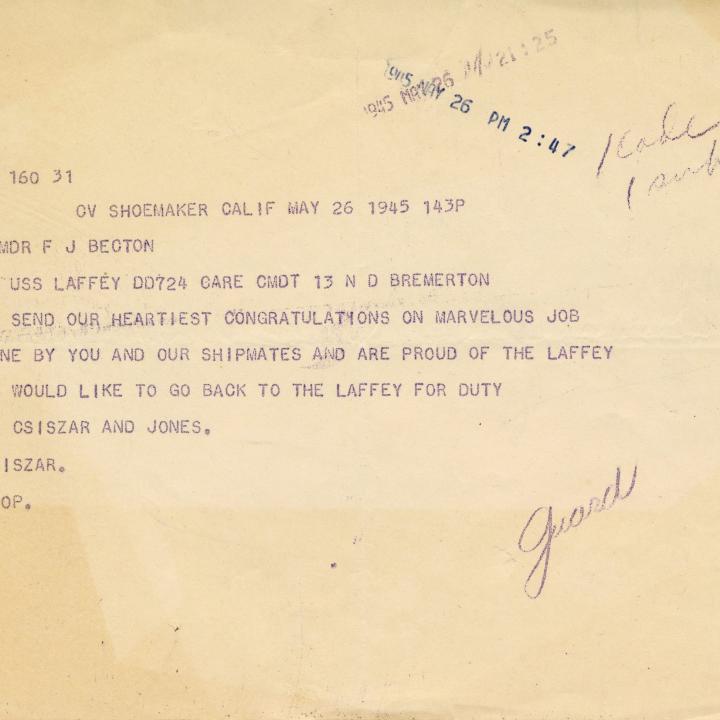 1945 MAY 26 PM 2:47
160 31
CV SHOEMAKER CALIF MAY 26 1945 143P
MDR F J BECTON
USS LAFFEY DD724 CARE CMDT 13 N D BREMERTON
SEND OUR HEARTIEST CONGRATULATIONS ON MARVELOUS JOB
NE BY YOU AND OUR SHIPMATES AND ARE PROUD OF THE LAFFEY
WOULD LIKE TO GO BACK TO THE LAFFEY FOR DUTY
CSISZAR AND JONES.
ISZAR.
OP.
Guard